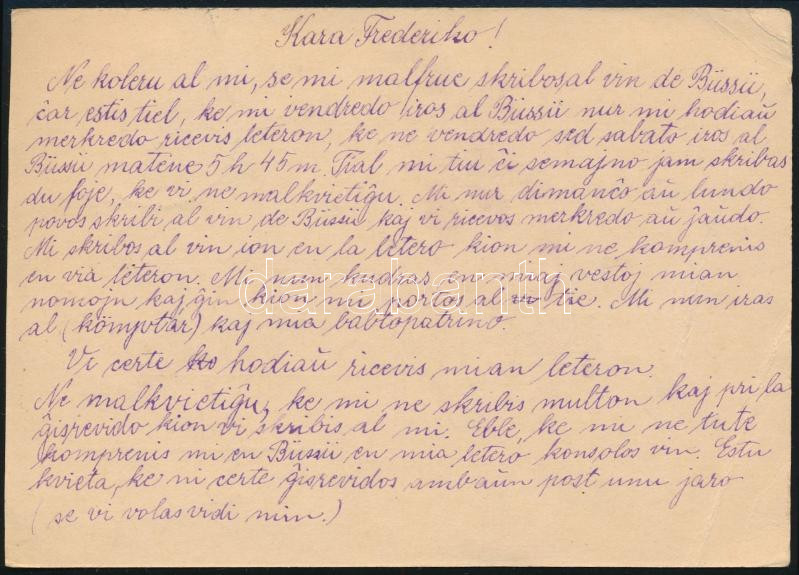 Kara Frederiko!
Ne koleru al mi, se mi malfrue skribos al vin de Büssü,
ĉar estis tiel, ke mi vendredo iros al Büssü nur mi hodiaŭ
merkredo ricevis leteron, ke ne vendredo sed sabato iros al
Büssü matene 5 h 45 m. Tial mi tiu ĉi semajno jam skribas
du foje, ke vi ne malkvietiĝu. Mi nur dimanĉo aŭ lundo
povos skribi al vin de Büssü kaj vi ricevos merkredo aŭ ĵaŭdo.
Mi skribos al vin ion en la letero kion mi ne komprenis
en via leteron. Mi nun kudras en miaj vestoj mian
nomojn kaj ĝin kion mi portos al tie. Mi nun iras
al (kömjvtar) kaj mia babtopatrino.
Vi certe ko hodiaŭ ricevis mian leteron.
Ne malkvietiĝu, ke mi ne skribis multon kaj pri la
ĝisrevido kion vi skribis al mi. Eble, ke mi ne tute
komprenis mi en Büssü en mia letero konsolos vin. Estu
kvieta, ke ni certe ĝisrevidos ambaŭn post unu jaro
(se vi volas vidi min.)
darabanth